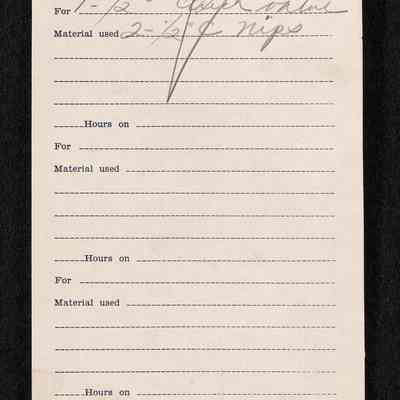 For 1-½" valve
Material used 2-½" C nips
Hours on
For
Material used
Hours on
For
Material used
Hours on